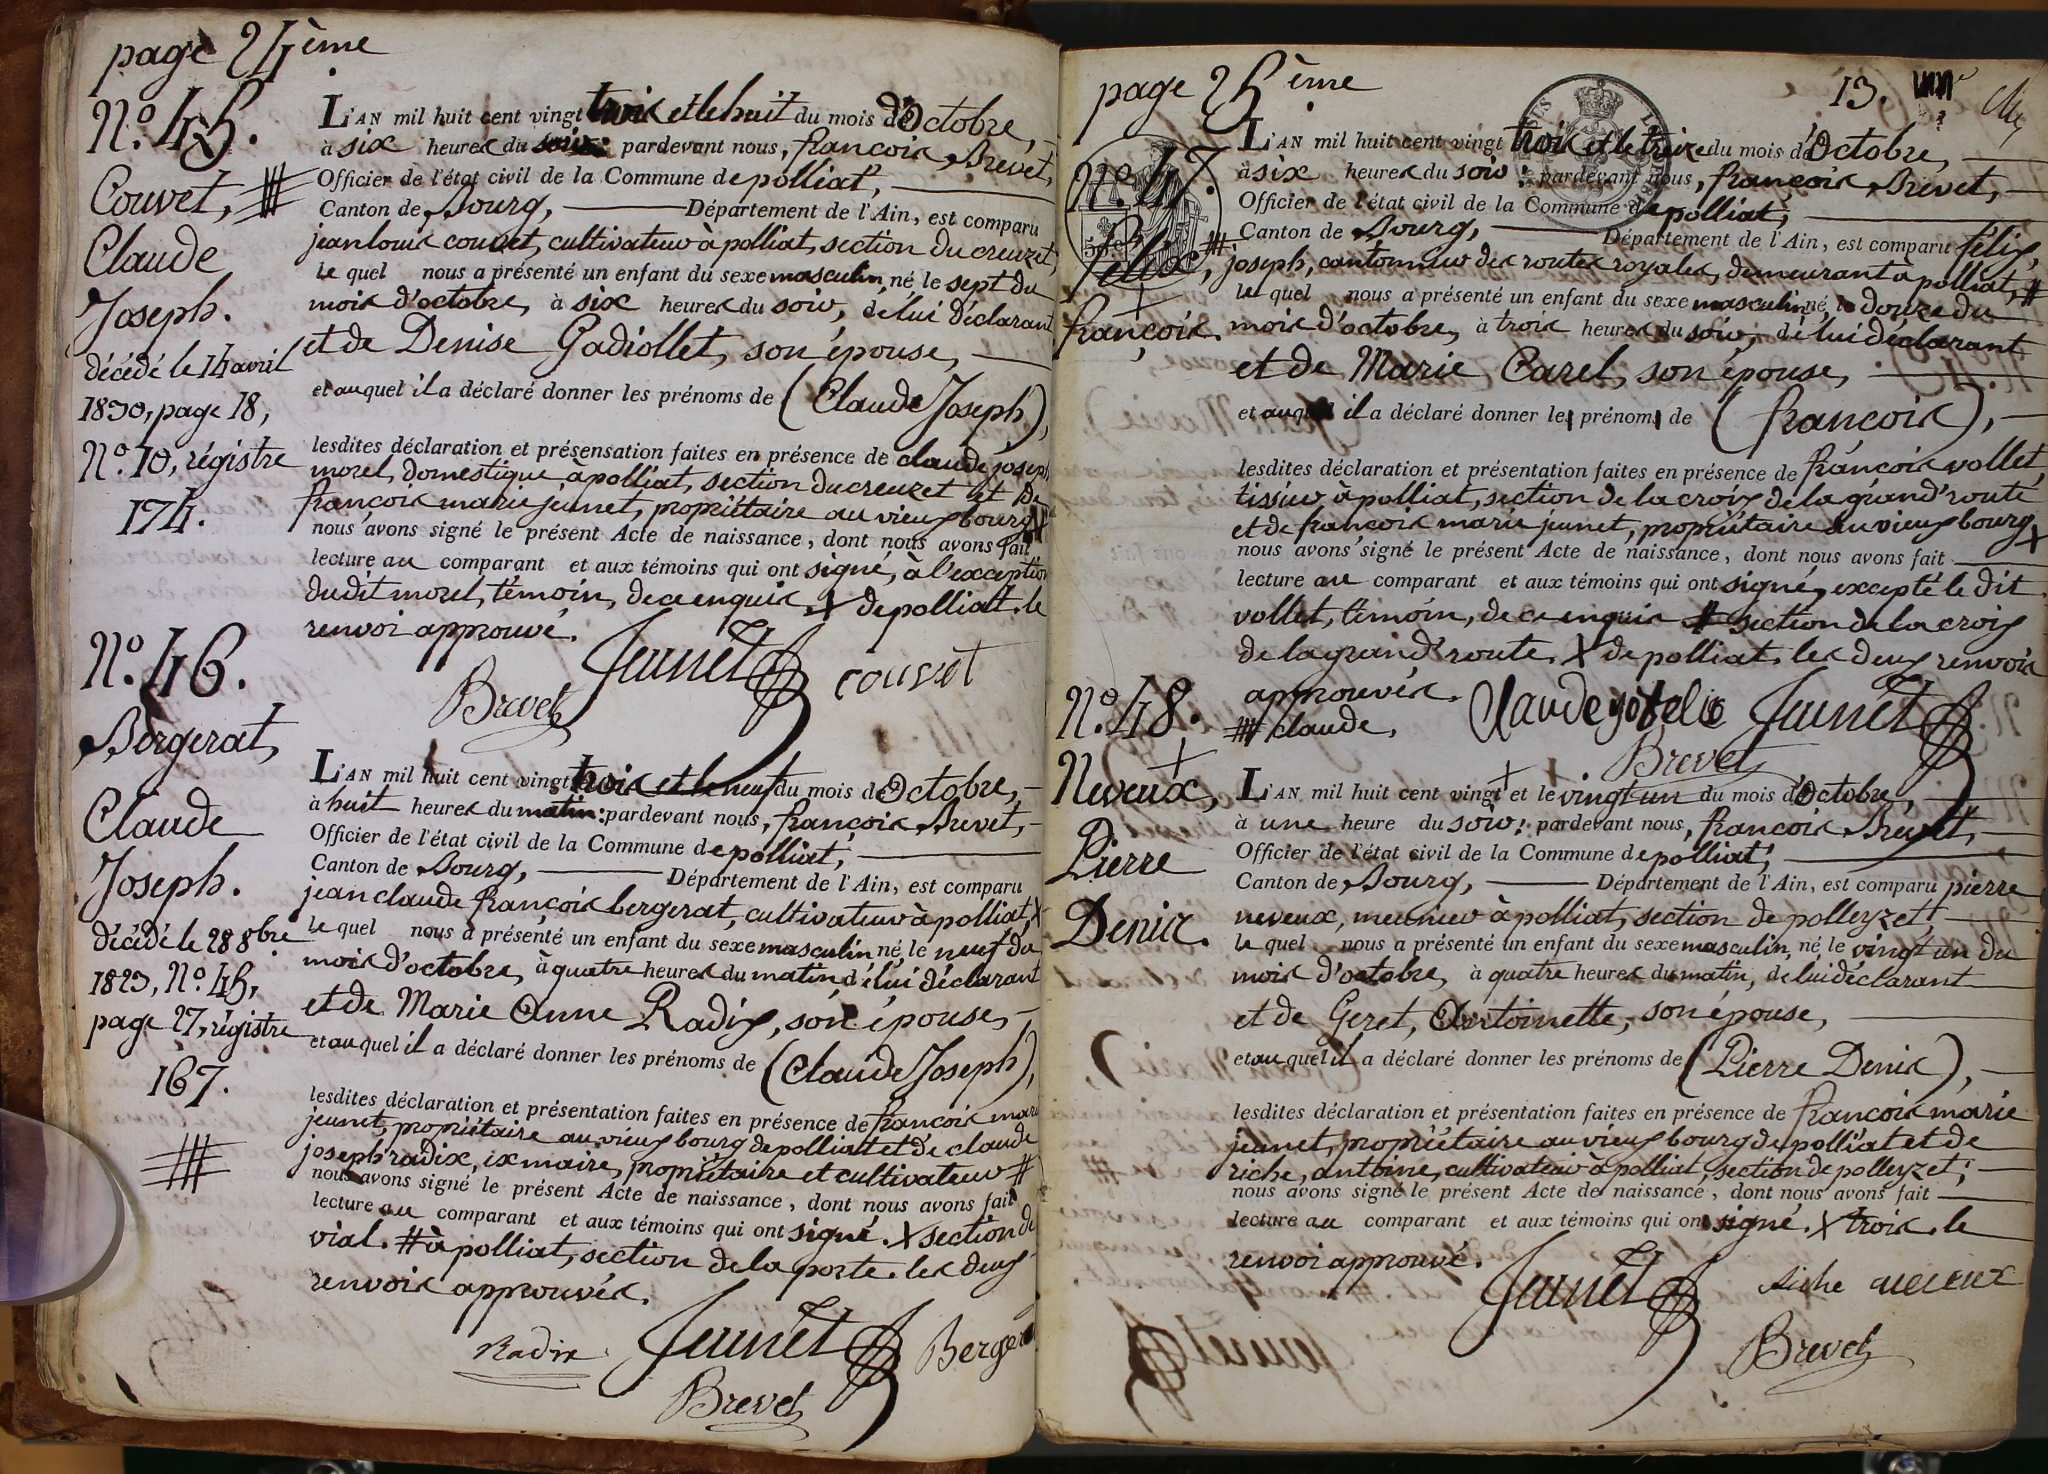 page 24ème
N.o 45.
Couvet,
Claude
Joseph.
décédé le 14 avril
1830, page 18,
N.o 10, régistre
174.
L'AN mil huit cent vingt trois et le huit du mois d'Octobre,
à six heures du soir: pardevant nous, françois Brevet,
Officier de l'état civil de la Commune de polliat,
Canton de Bourg, Département de l'Ain, est comparu
jean louis couvet, cultivateur à polliat, section du creuzet,
le quel nous a présenté un enfant du sexe masculin, né, le sept du
mois d'octobre, à six heures du soir, de lui déclarant
et de Denise Gadiollet, son épouse,
et auquel il a déclaré donner les prénoms de (Claude Joseph),
lesdites déclaration et présensation faites en présence de claude joseph
morel, domestique à polliat, section du creuzet et de
françois marie jeunet, propriétaire au vieux bourg X
nous avons signé le présent Acte de naissance, dont nous avons fait
lecture au comparant et aux témoins qui ont signé, à l'exception
dudit morel, témoin, de ce enquis. X de polliat. le
renvoi approuvé.
Brevet Jeunet couvet
N.o 46.
Bergerat,
Claude
Joseph.
décédé le 28 8bre
1823, N.o 45,
page 27, régistre
167.
L'AN mil huit cent vingt trois et le neuf du mois de Octobre,
à huit heures du matin: pardevant nous, françois Brevet,
Officier de l'état civil de la Commune de polliat,
Canton de Bourg, Département de l'Ain, est comparu
jean claude françois bergerat, cultivateur à polliat, X
le quel nous a présenté un enfant du sexe masculin, né, le neuf du
mois d'octobre, à quatre heures du matin de lui déclarant
et de Marie Anne Radix, son épouse,
et auquel il a déclaré donner les prénoms de (Claude Joseph),
lesdites déclaration et présentation faites en présence de françois marie
jeunet, propriétaire au vieux bourg de polliat et de claude
joseph radix, ex maire, propriétaire et cultivateur #
nous avons signé le présent Acte de naissance, dont nous avons fait
lecture au comparant et aux témoins qui ont signé. X section de
vial. # à polliat, section de la porte. les deux
renvois approuvés.
Radix Jeunet Bergerat
Brevet
page 25ème
13.
N.o 47.
félix,
françois.
L'AN mil huit cent vingt trois et le treize du mois d'Octobre,
à six heures du soir: pardevant nous, françois Brevet,
Officier de l'état civil de la Commune de polliat,
Canton de Bourg, Département de l'Ain, est comparu félix,
# joseph, cantonnier des routes royales, demeurant à polliat, #
le quel nous a présenté un enfant du sexe masculin né, le douze du
mois d'octobre, à trois heures du soir, de lui déclarant
et de Marie Carel, son épouse,
et auquel il a déclaré donner les prénoms de (françois),
lesdites déclaration et présentation faites en présence de françois vollet,
tissier à polliat, section de la croix de la grand'route
et de françois marie jeunet, propriétaire au vieux bourg X
nous avons signé le présent Acte de naissance, dont nous avons fait
lecture au comparant et aux témoins qui ont signé, excepté le dit
vollet, témoin, de ce enquis # section de la croix
de la grand'route. X de polliat. les deux renvois
approuvés.
# claude, Jeunet
Brevet
N.o 48.
Neveux,
Pierre
Denis.
L'AN mil huit cent vingt X et le vingt un du mois d'Octobre,
à une heure du soir: pardevant nous, françois Brevet,
Officier de l'état civil de la Commune de polliat,
Canton de Bourg, Département de l'Ain, est comparu pierre
neveux, meunier à polliat, section de polleyzet,
le quel nous a présenté un enfant du sexe masculin, né le vingt un du
mois d'octobre, à quatre heures du matin, de lui déclarant
et de Geret, Antoinette, son épouse,
et auquel il a déclaré donner les prénoms de (Pierre Denis),
lesdites déclaration et présentation faites en présence de françois marie
jeunet, propriétaire au vieux bourg de polliat et de
riche, antoine, cultivateur à polliat, section de polleyzet;
nous avons signé le présent Acte de naissance, dont nous avons fait
lecture au comparant et aux témoins qui ont signé. X trois. le
renvoi approuvé.
Jeunet riche neveux
Brevet